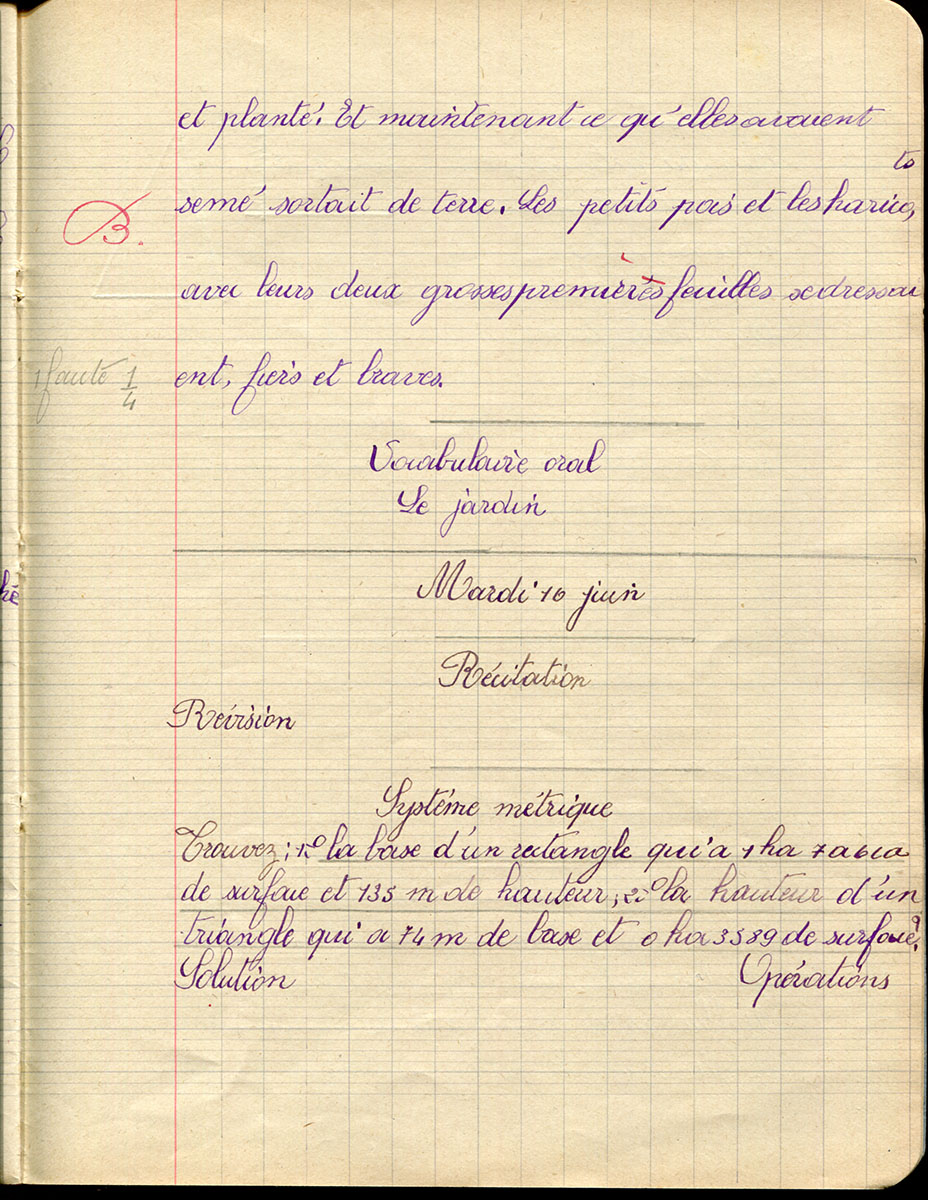 et planté. Et maintenant ce qu'elles avaient
semé sortait de terre. Les petits pois et les harico
ts
B.
avec leurs deux grosses premières feuilles se dressai
ent, fiers et braves.
1 faute 1/4
Vocabulaire oral
Le jardin
Mardi 16 juin
Récitation
Révision
Système métrique
Trouvez; 1º la base d'un rectangle qui a 1 ha 7a 61ca
de surface et 135 m de hauteur; 2º la hauteur d'un
triangle qui a 74 m de base et 0 ha 3589 de surface?
Solution Opérations